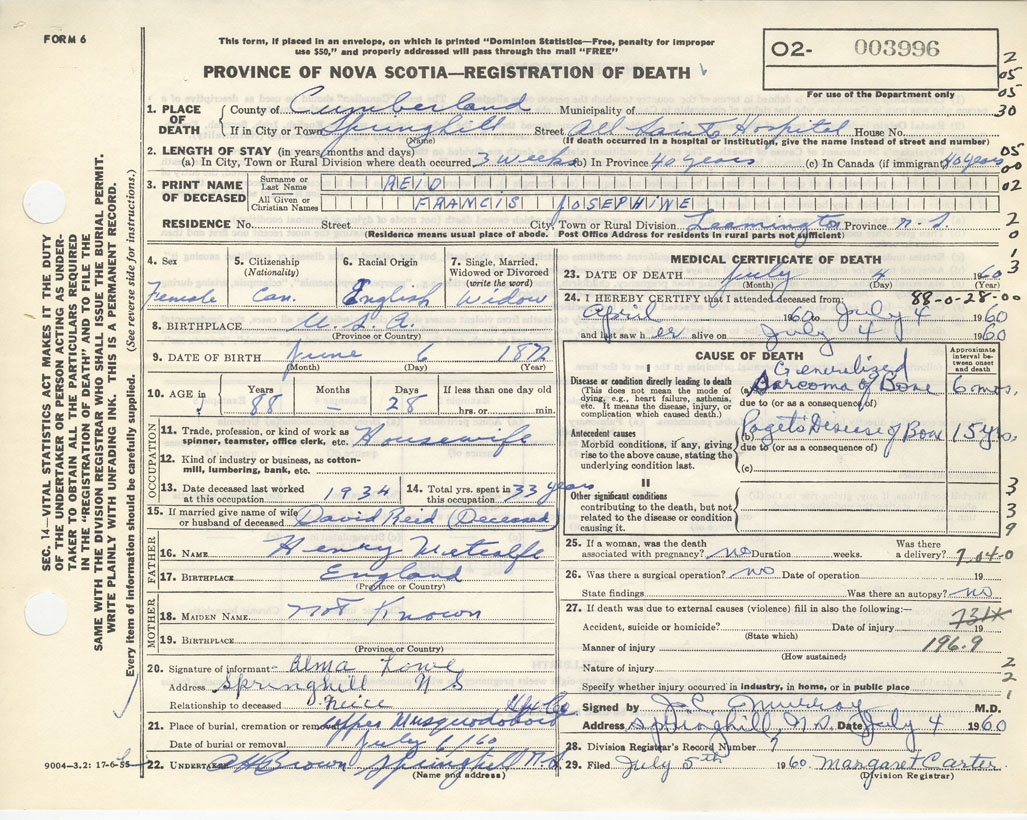 FORM 6
This form, if placed in an envelope, on which is printed "Dominion Statistics—Free, penalty for improper
use $50," and properly addressed will pass through the mail "FREE"
PROVINCE OF NOVA SCOTIA—REGISTRATION OF DEATH
O2- 003996
For use of the Department only
2
05
05
30
1. PLACE OF DEATH
County of Cumberland Municipality of
If in City or Town Springhill Street All Saints Hospital House No.
(Name) (If death occurred in a hospital or institution, give the name instead of street and number)
2. LENGTH OF STAY (in years, months and days)
(a) In City, Town or Rural Division where death occurred 3 weeks (b) In Province 40 years (c) In Canada (if immigrant) 40 years
05
00
02
3. PRINT NAME OF DECEASED
Surname or Last Name REID
All Given or Christian Names FRANCIS JOSEPHINE
RESIDENCE No. Street City, Town or Rural Division Leamington Province N.S.
(Residence means usual place of abode. Post Office Address for residents in rural parts not sufficient)
2
0
1
3
4. Sex Female
5. Citizenship (Nationality) Can.
6. Racial Origin English
7. Single, Married, Widowed or Divorced (write the word) Widow
8. BIRTHPLACE U.S.A.
(Province or Country)
9. DATE OF BIRTH June 6 1872
(Month) (Day) (Year)
10. AGE in Years 88 Months — Days 28 If less than one day old hrs. or min.
OCCUPATION
11. Trade, profession, or kind of work as spinner, teamster, office clerk, etc. Housewife
12. Kind of industry or business, as cotton-mill, lumbering, bank, etc.
13. Date deceased last worked at this occupation 1934
14. Total yrs. spent in this occupation 33 years
15. If married give name of wife or husband of deceased David Reid (Deceased)
FATHER
16. NAME Henry Metcalfe
17. BIRTHPLACE England
(Province or Country)
MOTHER
18. MAIDEN NAME Not Known
19. BIRTHPLACE
(Province or Country)
20. Signature of informant Alma Lowe
Address Springhill N S
Relationship to deceased Neice
21. Place of burial, cremation or removal Upper Musquodoboit Hfx Co
Date of burial or removal July 6/60
22. UNDERTAKER Brown Springhill N.S.
(Name and address)
MEDICAL CERTIFICATE OF DEATH
23. DATE OF DEATH July 4 1960
(Month) (Day) (Year)
24. I HEREBY CERTIFY that I attended deceased from: 88-0-28-00
April 1960 to July 4 1960
and last saw her alive on July 4 1960
CAUSE OF DEATH
Approximate interval between onset and death
I
Disease or condition directly leading to death
(This does not mean the mode of dying, e.g., heart failure, asthenia, etc. It means the disease, injury, or complication which caused death.)
(a) Generalized Sarcoma of Bone 6 mos.
due to (or as a consequence of)
Antecedent causes
Morbid conditions, if any, giving rise to the above cause, stating the underlying condition last.
(b) Pagets Disease of Bone 15 yrs.
due to (or as a consequence of)
(c)
II
Other significant conditions contributing to the death, but not related to the disease or condition causing it.
3
3
3
9
25. If a woman, was the death associated with pregnancy? no Duration weeks. Was there a delivery? 7.04-0
26. Was there a surgical operation? no Date of operation 19
State findings Was there an autopsy? no
27. If death was due to external causes (violence) fill in also the following:—
Accident, suicide or homicide? Date of injury 19
(State which) 731X
Manner of injury 196.9
(How sustained)
Nature of injury
Specify whether injury occurred in industry, in home, or in public place
2
2
1
Signed by J.C. Murray M.D.
Address Springhill, N.S. Date July 4 1960
28. Division Registrar's Record Number
29. Filed July 5th 1960 Margaret Carter
(Division Registrar)
SEC. 14—VITAL STATISTICS ACT MAKES IT THE DUTY
OF THE UNDERTAKER OR PERSON ACTING AS UNDER-
TAKER TO OBTAIN ALL THE PARTICULARS REQUIRED
IN THE "REGISTRATION OF DEATH" AND TO FILE THE
SAME WITH THE DIVISION REGISTRAR WHO SHALL ISSUE THE BURIAL PERMIT.
WRITE PLAINLY WITH UNFADING INK. THIS IS A PERMANENT RECORD.
Every item of information should be carefully supplied. (See reverse side for instructions.)
9004—3.2: 17-6-55